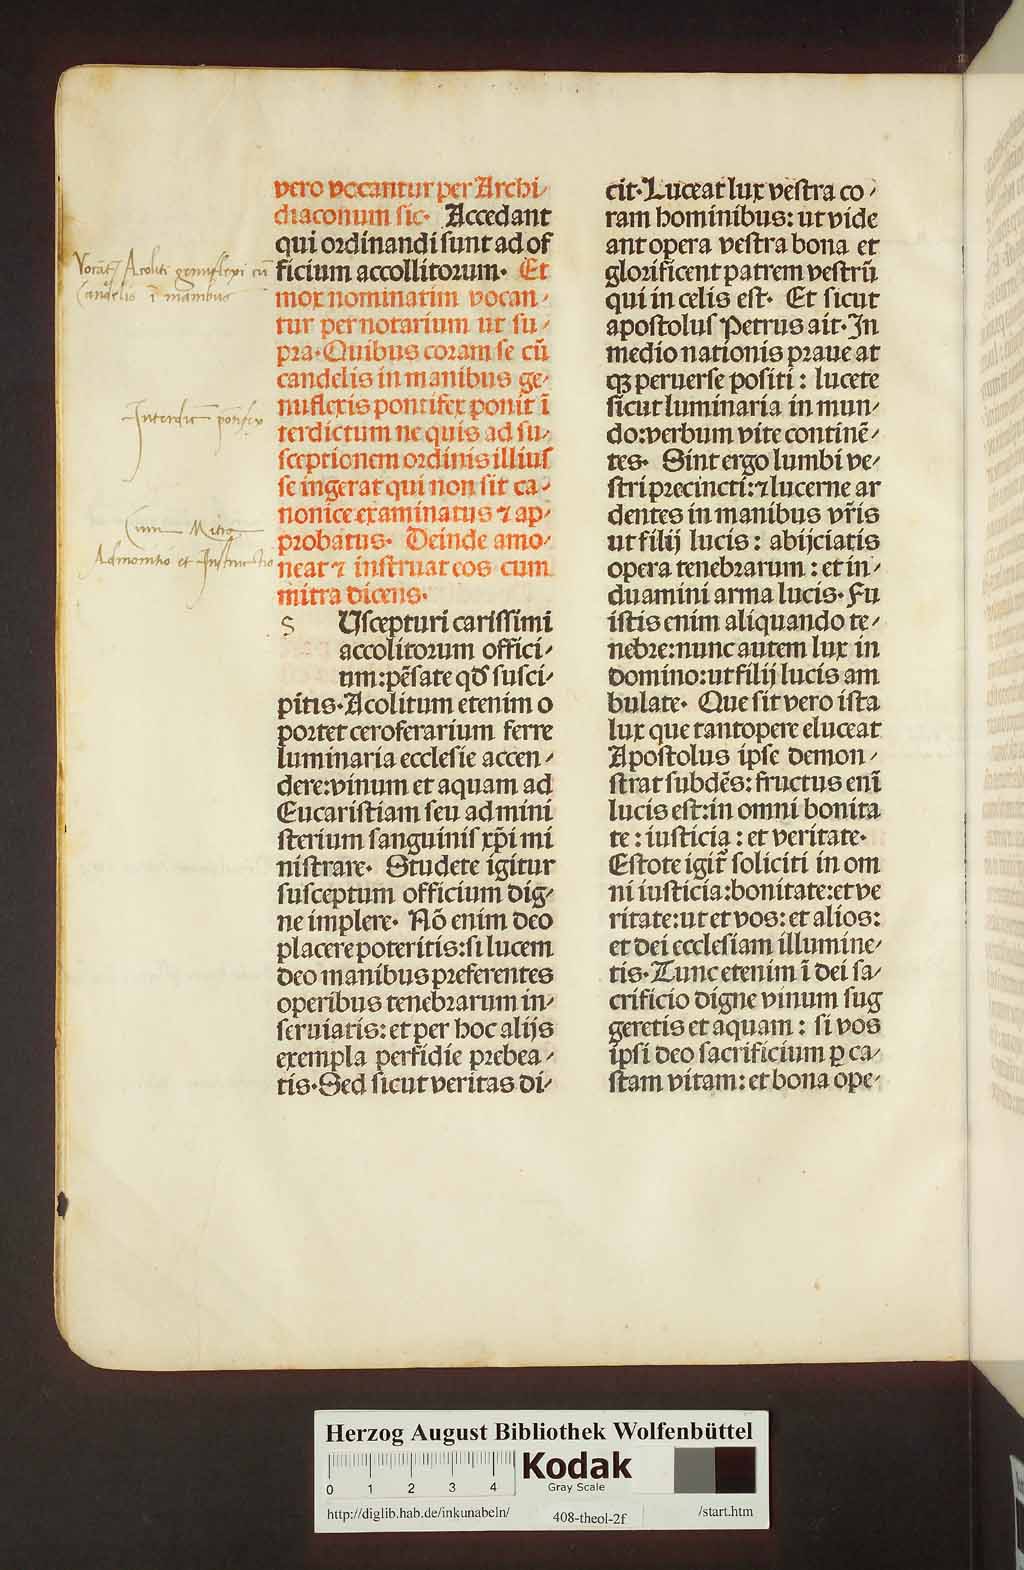 vero vocantur per Archi-
diaconum sic. Accedant
qui ordinandi sunt ad of
ficium accollitorum. Et
mox nominatim vocan-
tur per notarium ut su-
pra. Quibus coram se cū
candelis in manibus ge-
nuflexis pontifex ponit ī
terdictum ne quis ad su-
sceptionem ordinis illius
se ingerat qui non sit ca-
nonice examinatus ⁊ ap-
probatus. Deinde amo-
neat ⁊ instruat eos cum
mitra dicens.
s Uscepturi carissimi
accolitorum offici-
um: pēsate qđ susci-
pitis. Acolitum etenim o
portet ceroferarium ferre
luminaria ecclesie accen-
dere: vinum et aquam ad
Eucaristiam seu ad mini
sterium sanguinis xp̄i mi
nistrare. Studete igitur
susceptum officium dig-
ne implere. Nō enim deo
placere poteritis: si lucem
deo manibus preferentes
operibus tenebrarum in-
seruiatis: et per hoc alijs
exempla perfidie prebea-
tis. Sed sicut veritas di-
cit. Luceat lux vestra co-
ram hominibus: ut vide
ant opera vestra bona et
glorificent patrem vestrū
qui in celis est. Et sicut
apostolus Petrus ait. In
medio nationis praue at
qꝫ peruerse positi: lucete
sicut luminaria in mun-
do: verbum vite continē-
tes. Sint ergo lumbi ve-
stri precincti: ⁊ lucerne ar
dentes in manibus vr̄is
ut filij lucis: abijciatis
opera tenebrarum: et in-
duamini arma lucis. Fu
istis enim aliquando te-
nebre: nunc autem lux in
domino: ut filij lucis am
bulate. Que sit vero ista
lux que tantopere eluceat
Apostolus ipse demon-
strat subdēs: fructus enī
lucis est: in omni bonita
te: iusticia: et veritate.
Estote igit᷑ soliciti in om
ni iusticia: bonitate: et ve
ritate: ut et vos: et alios:
et dei ecclesiam illumine-
tis. Tunc etenim ī dei sa-
crificio digne vinum sug
geretis et aquam: si vos
ipsi deo sacrificium ꝑ ca-
stam vitam: et bona ope-
Vocāt᷑ Acoliti genuflexi cū
Candelis ī manibus
Interdictū pōtifex
Cum Mitra
Admonitio et Instructio
Herzog August Bibliothek Wolfenbüttel
0 1 2 3 4
Kodak
Gray Scale
http://diglib.hab.de/inkunabeln/ 408-theol-2f /start.htm